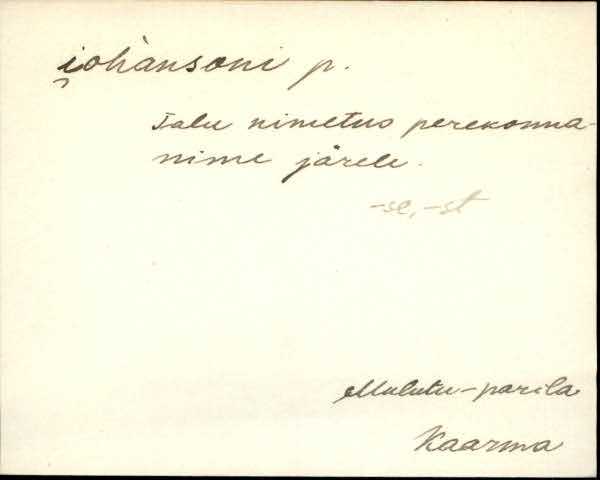 i̯ohànsoni p.
Talu nimetus perekonna-
nime järele.
-se, -st
Mulutu-parila
Kaarma